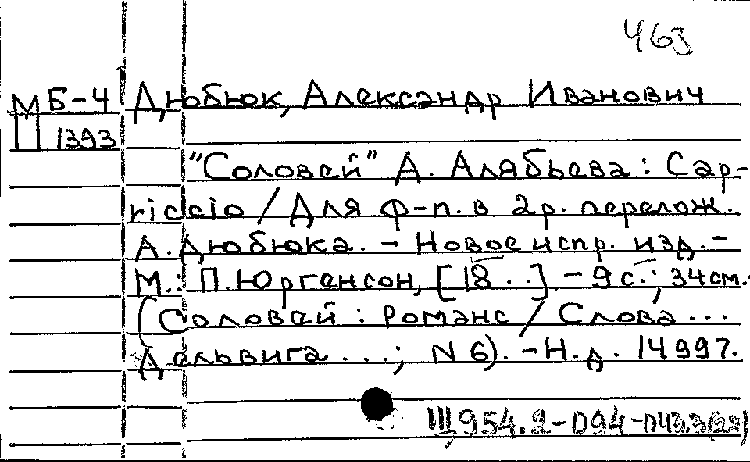 463
МБ-4 Дюбюк, Александр Иванович
П 1393
"Соловей" А. Алябьева: Cap-
riccio / Для ф-п. в 2 р. перелож.
А. Дюбюка. - Новое испр. изд. -
М.: П. Юргенсон, [18..] - 9 с.; 34 см. -
(Соловей: Романс / Слова ...
Дельвига ...; N 6). - Н. д. 14997.
Ш954.2-Д94-П43.3(